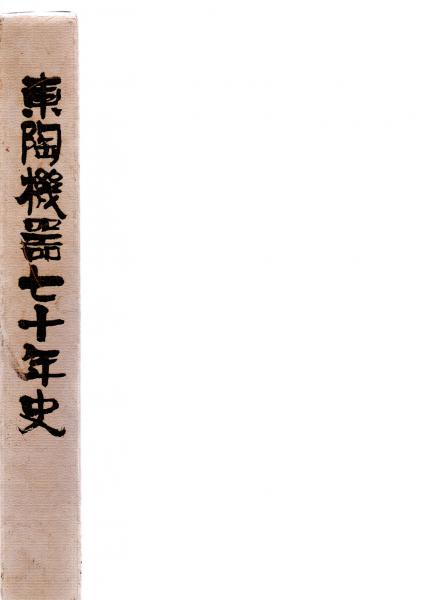 東陶機器七十年史